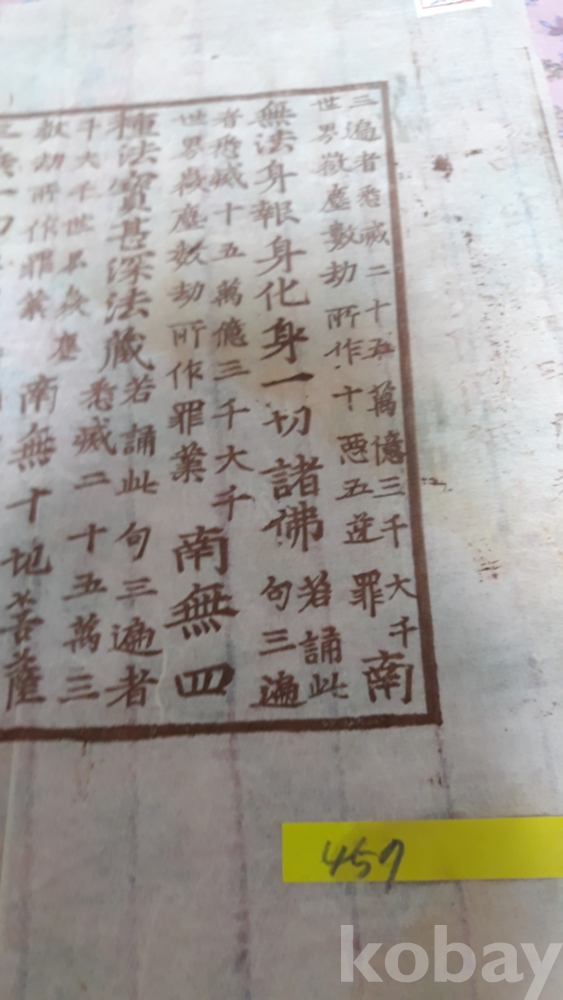 三遍者悉滅二十五萬億三千大千
世界微塵數劫所作十悪五逆罪
南
無法身報身化身一切諸佛
若誦此
句三遍
者悉滅十五萬億三千大千
世界微塵數劫所作罪業
南無四
種法寶甚深法藏
若誦此句三遍者
悉滅二十五萬三
千大千世界微塵
數劫所作罪業
南無十地菩薩
一切
457
kobay